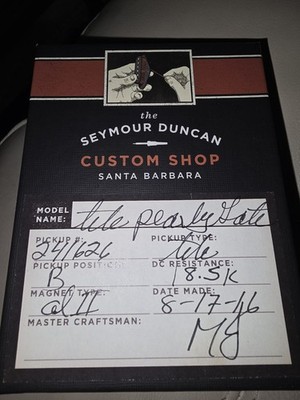 the
SEYMOUR DUNCAN
CUSTOM SHOP
SANTA BARBARA
MODEL NAME: tele pearly Gate
PICKUP #: PICKUP TYPE:
241626 tele
PICKUP POSITION: DC RESISTANCE:
B 8.5K
MAGNET TYPE: DATE MADE:
8-17-16
MASTER CRAFTSMAN:
MJ